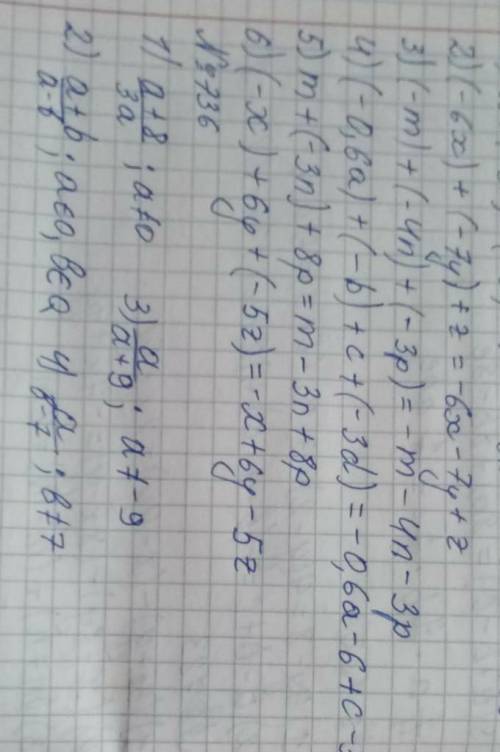 2) (-6x) + (-7y) + z = -6x - 7y + z
3) (-m) + (-4n) + (-3p) = -m - 4n - 3p
4) (-0,6a) + (-b) + c + (-3d) = -0,6a - b + c -
5) m + (-3n) + 8p = m - 3n + 8p
6) (-x) + 6y + (-5z) = -x + 6y - 5z
№ 736
1) a+8/3a ; a≠0 3) a/a+9 ; a≠-9
2) a+b/a-b ; a∈Q, b∈Q 4) a/b-7 ; b≠7